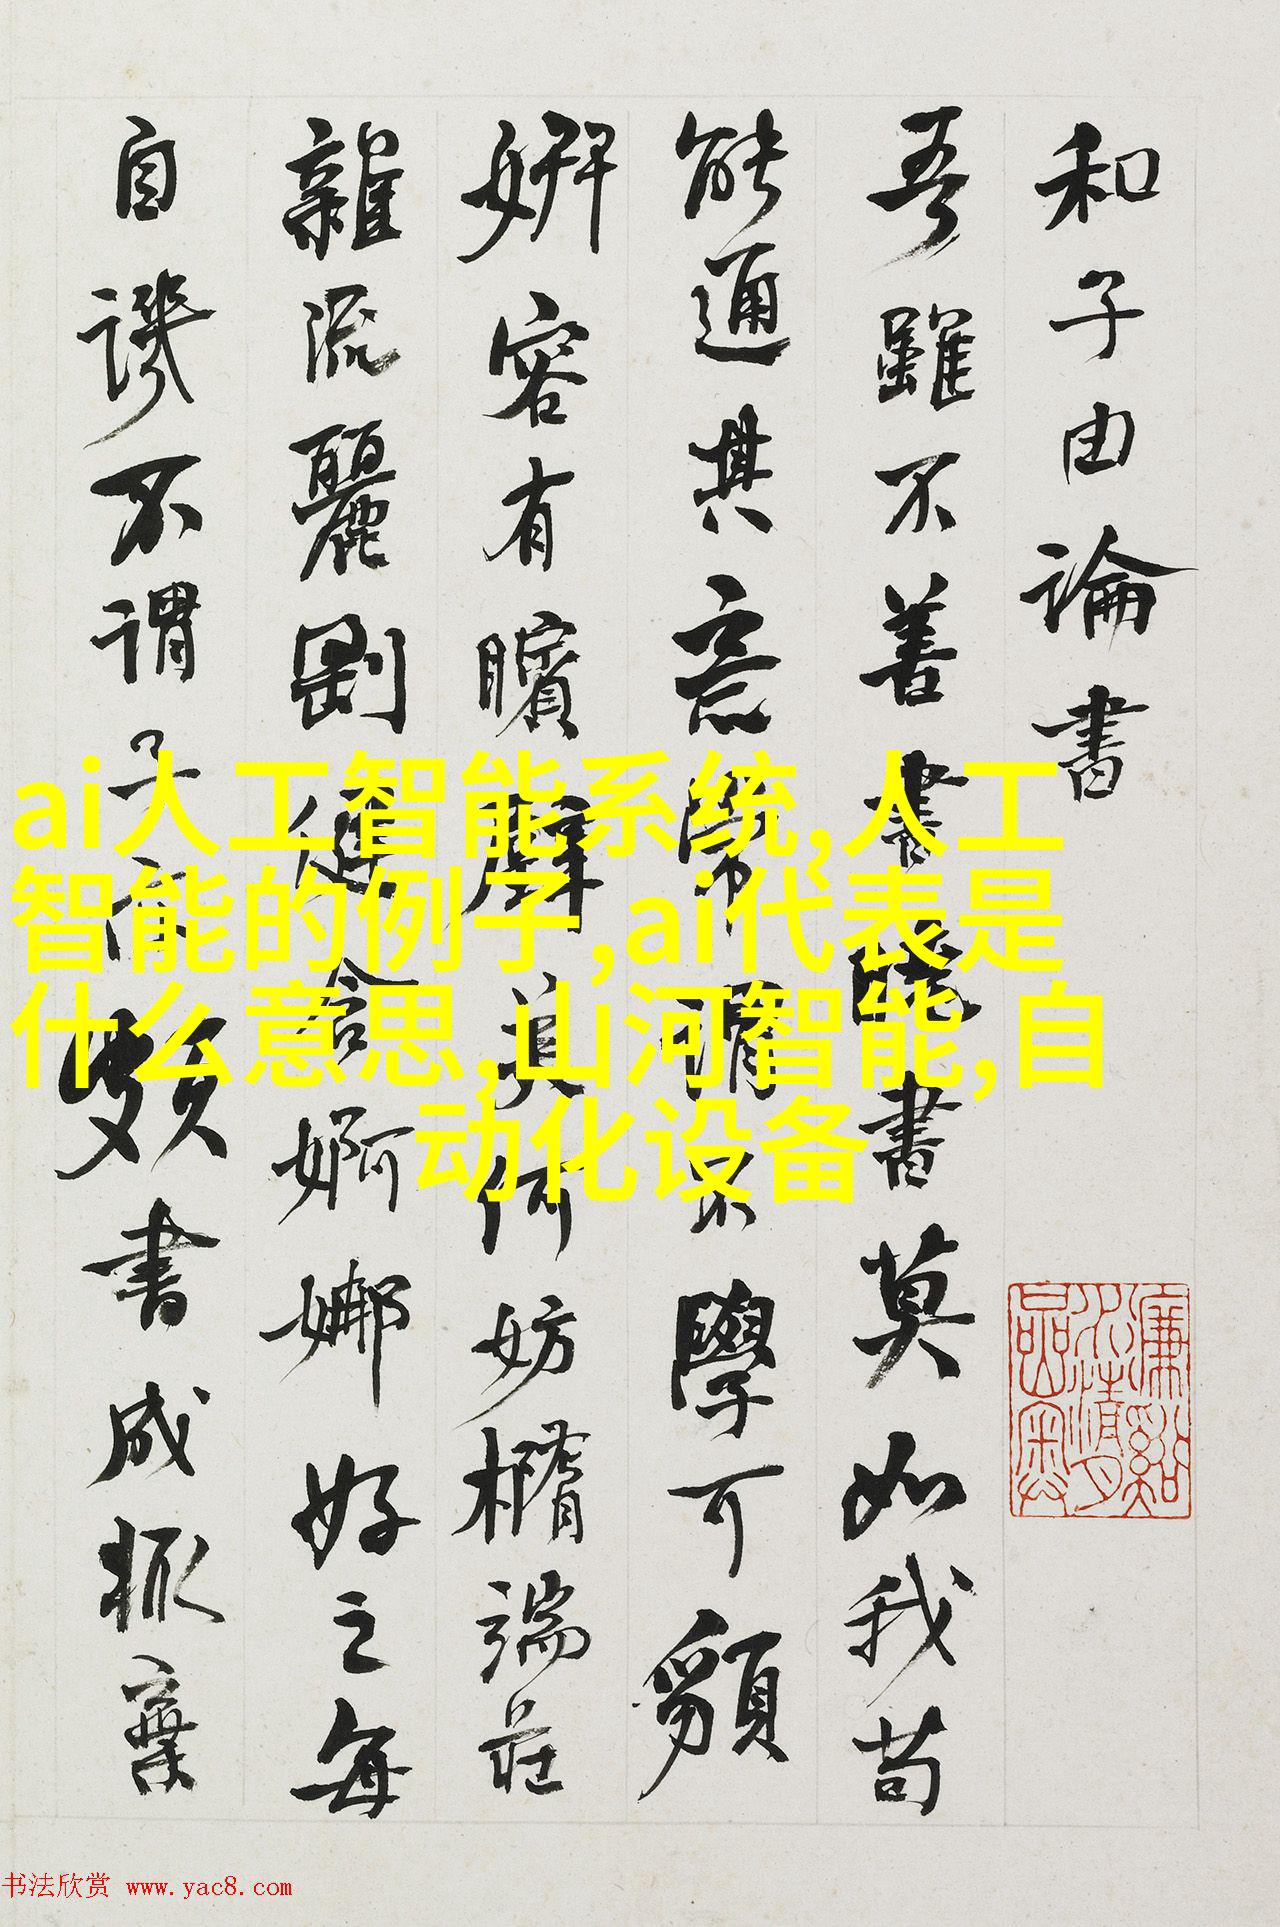 和子由論書
吾雖不善書曉書莫如我苟
能通其意常謂不學可䫉
妍容有矉璧美何妨橢端莊
雜流麗剛健含婀娜好之每
自譏不謂子亦頗書成輒棄
ai人工智能系统,人工
智能的例子,ai代表是
什么意思,山河智能,自
动化设备
书法欣赏 www.yac8.com